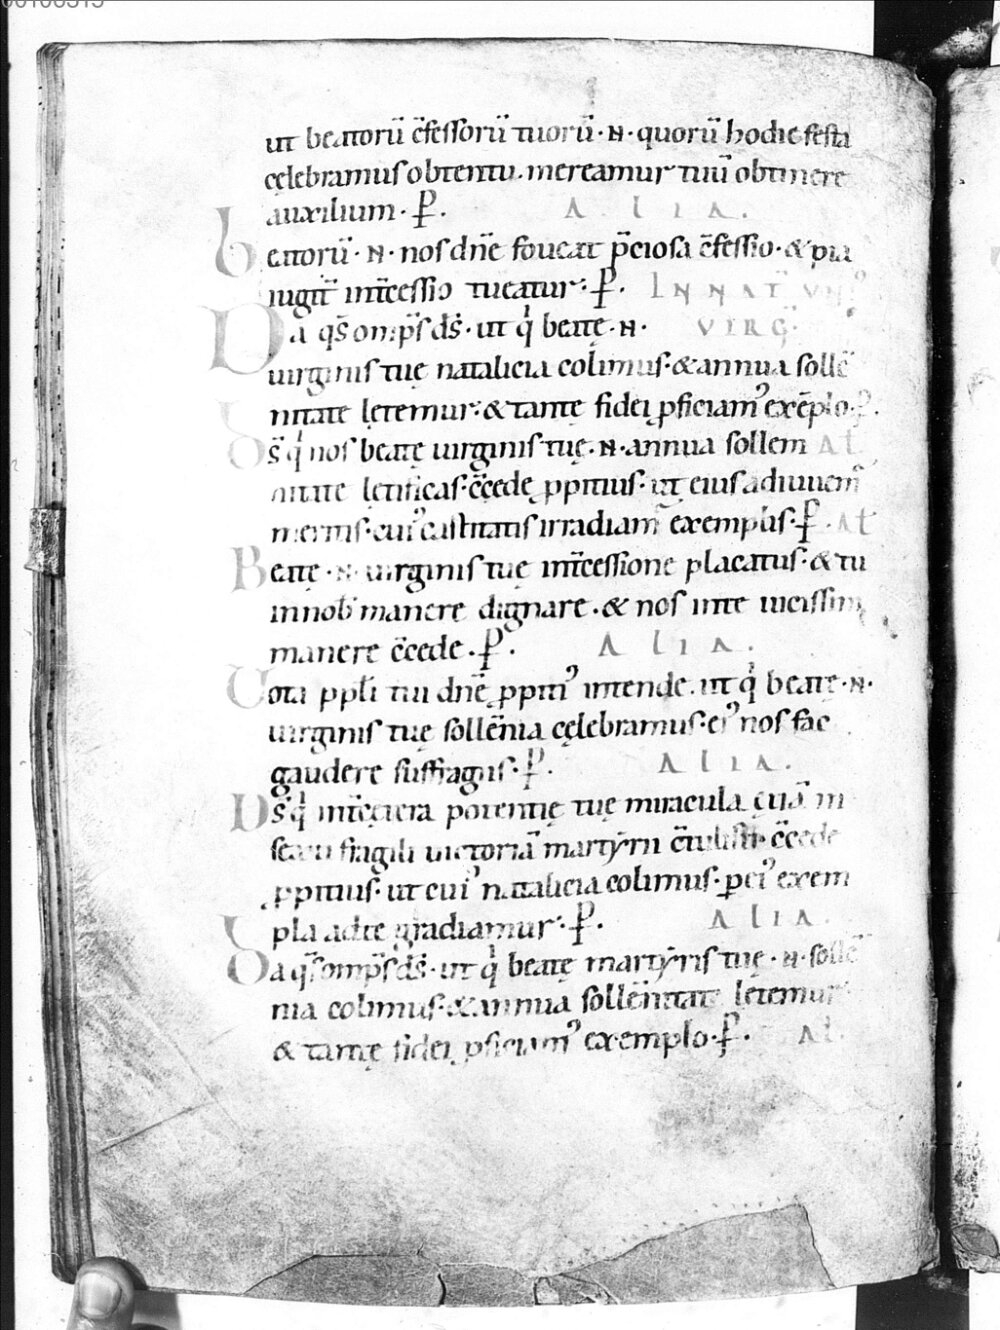 ut beatorū c̄fessorū tuorū · N · quorū hodie festa
celebramus obtentu . mereamur tuū obtinere
auxilium · P̄ . ALIA .
Beatorū · N · nos dn̄e foueat p̄ciosa c̄fessio · & pia
iugit̄ int̄cessio tueatur · P̄ . IN NAT UNIꝰ
Da qs̄ omp̄s ds̄ · ut q¹ beatę · N · VIRG ·
uirginis tuę natalicia colimus · & annua sollē
nitate lętemur · & tantę fidei ꝓficiamꝰ exēplo · P̄ .
Ds̄ q¹ nos beatę uirginis tuę · N · annua sollem AL
nitate lętificas · c̄cede ꝓpitius · ut eius adiuuem̄
meritis · cuiꝰ castitatis irradiam̄ exemplis · P̄ . AL
Beatę · N · uirginis tuę int̄cessione placatus · & tu
in nob̄ manere dignare · & nos in te uicissim
manere c̄cede . P̄ . ALIA .
Uota ppl̄i tui dn̄e ꝓpitiꝰ intende . ut q¹ beatę · N ·
uirginis tuę sollēnia cęlebramus · eiꝰ nos fac
gaudere suffragiis · P̄ . ALIA .
Ds̄ q¹ int̄ cętera potentię tuę miracula ętiā in
sexu fragili uictoriā martyrii c̄tulisti · c̄cede
ꝓpitius · ut cuiꝰ natalicia colimus · p̱ eiꝰ exem
pla ad te gradiamur · P̄ . ALIA .
Da qs̄ omp̄s ds̄ · ut q¹ beatę martyris tuę · N · sollē
nia colimus · & annua sollēnitate lętemur
& tantę fidei ꝓficiamꝰ exemplo · P̄ . AL .